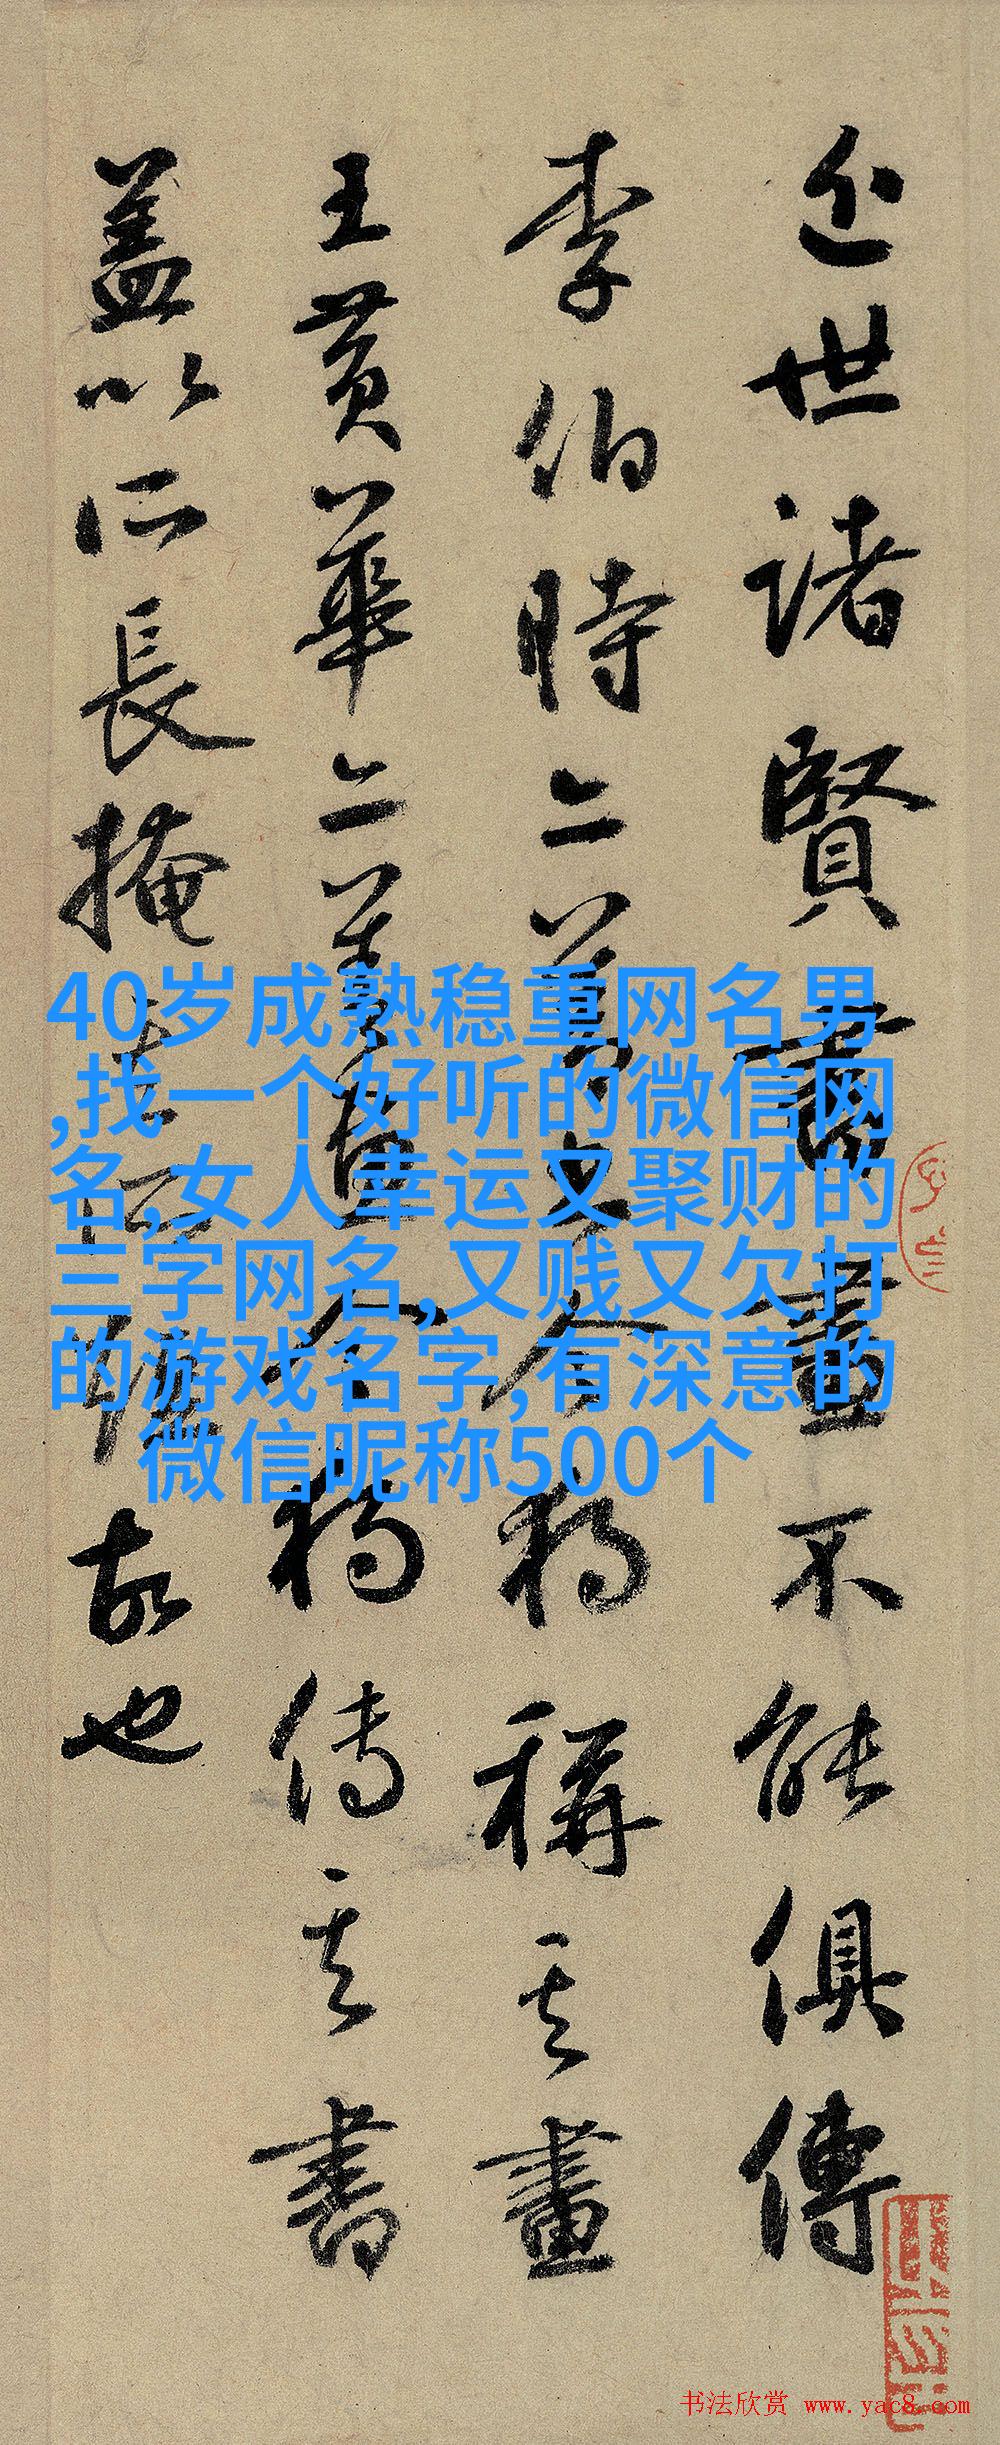 近世諸賢書畫不能俱傳
李伯時今獨稱其畫
王黃華善畫今獨傳其書
蓋以所長掩其所故也
40岁成熟稳重网名男
,找一个好听的微信网
名,女人幸运又聚财的
三字网名,又贱又欠打
的游戏名字,有深意的
微信昵称500个
书法欣赏 www.yac8.com